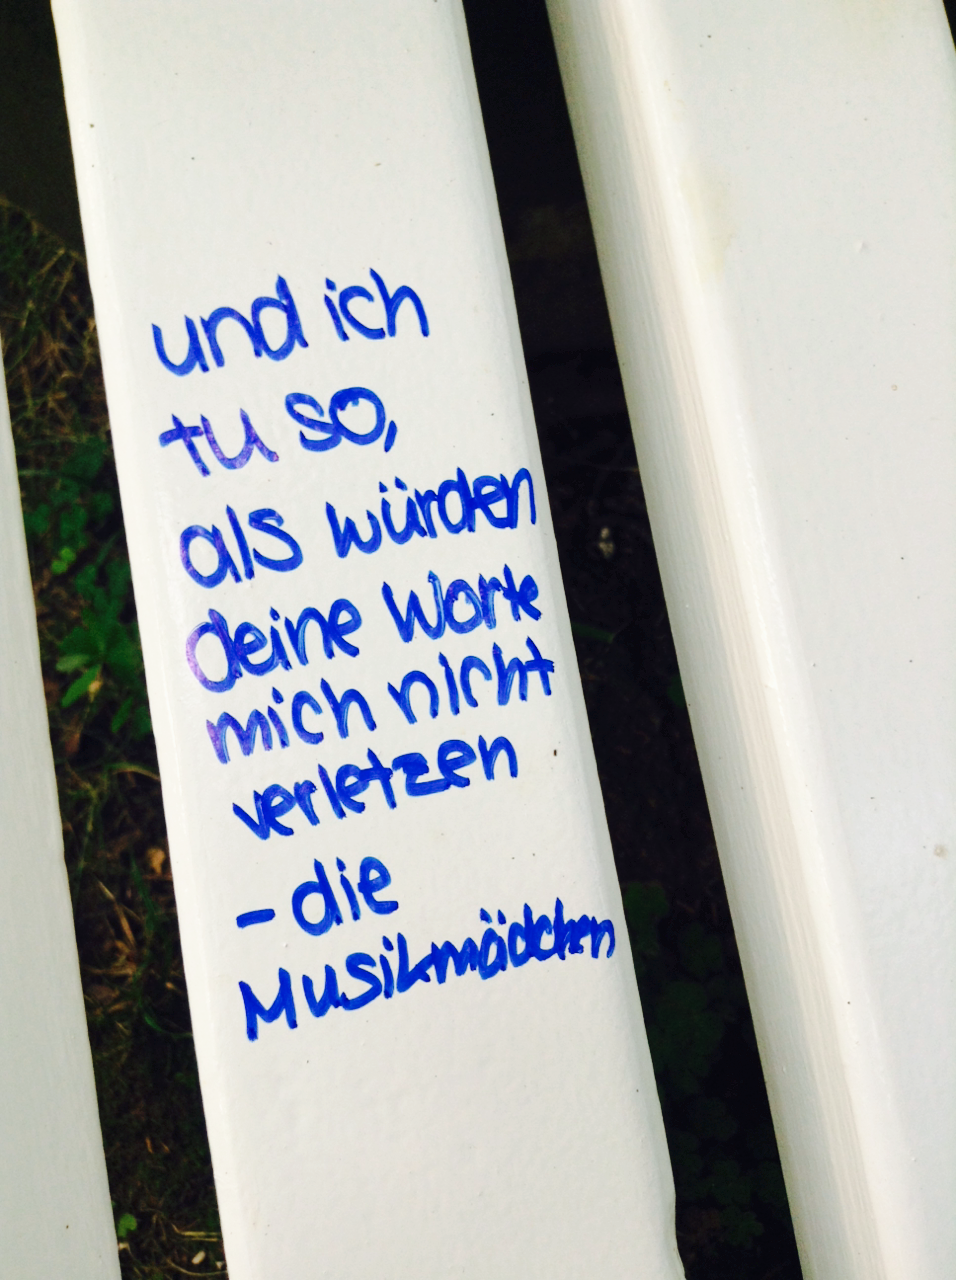 und ich
tu so,
als würden
deine Worte
mich nicht
verletzen
- die
Musikmädchen